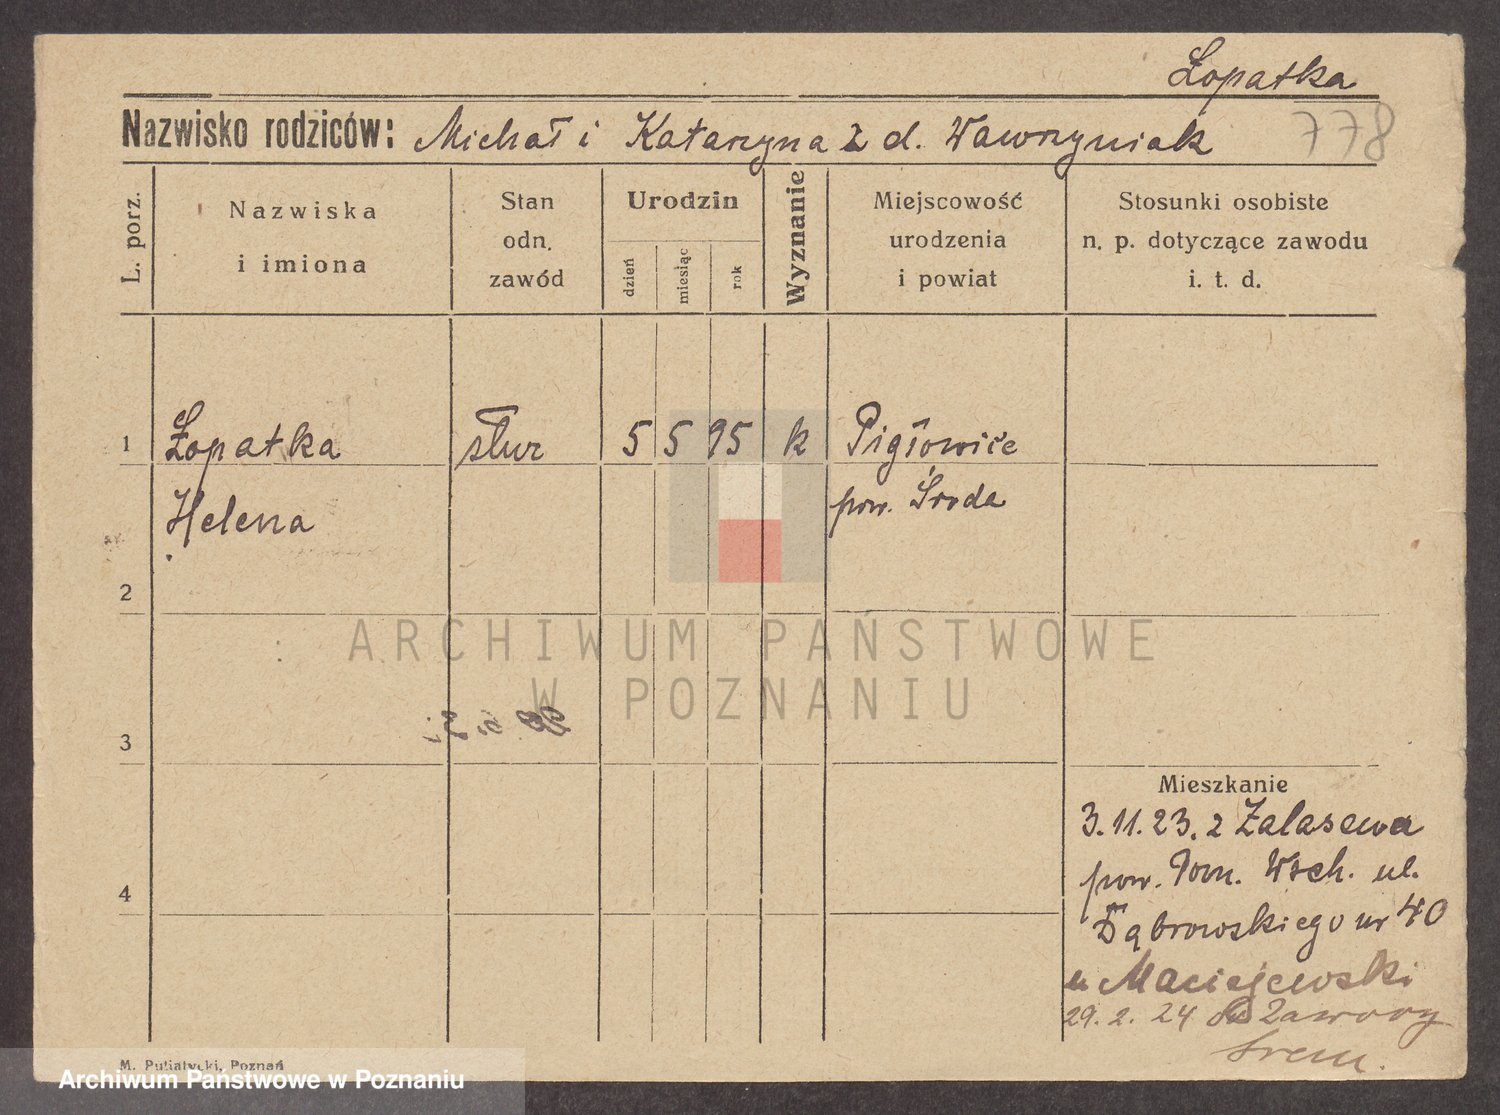 Łopatka
Nazwisko rodziców: Michał i Katarzyna z d. Wawrzyniak
778
L. porz.
Nazwiska
i imiona
Stan
odn.
zawód
Urodzin
dzień
miesiąc
rok
Wyznanie
Miejscowość
urodzenia
i powiat
Stosunki osobiste
n. p. dotyczące zawodu
i. t. d.
1 Łopatka służ 5 5 95 k Pigłowice
Helena pow. Środa
2
ARCHIWUM PAŃSTWOWE
W POZNANIU
3
Mieszkanie
3.11.23. z Zalasewa
pow. Pozn. Wsch. ul.
Dąbrowskiego nr 40
u Maciejewski
29.2.24 do Zawory
Śrem.
4
M. Putiatycki, Poznań
Archiwum Państwowe w Poznaniu